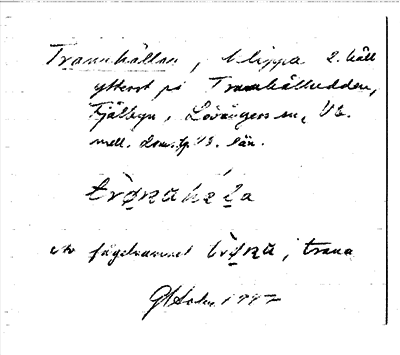 Trannhällan, klippa 2. häll
ytterst på Trannhälludden,
Fjälbyn, Lövångers sn, Vb.
mell. domsg. Vb. län.
trø̀naheͅla
av fågelnamnet trø̀na, trana
1997